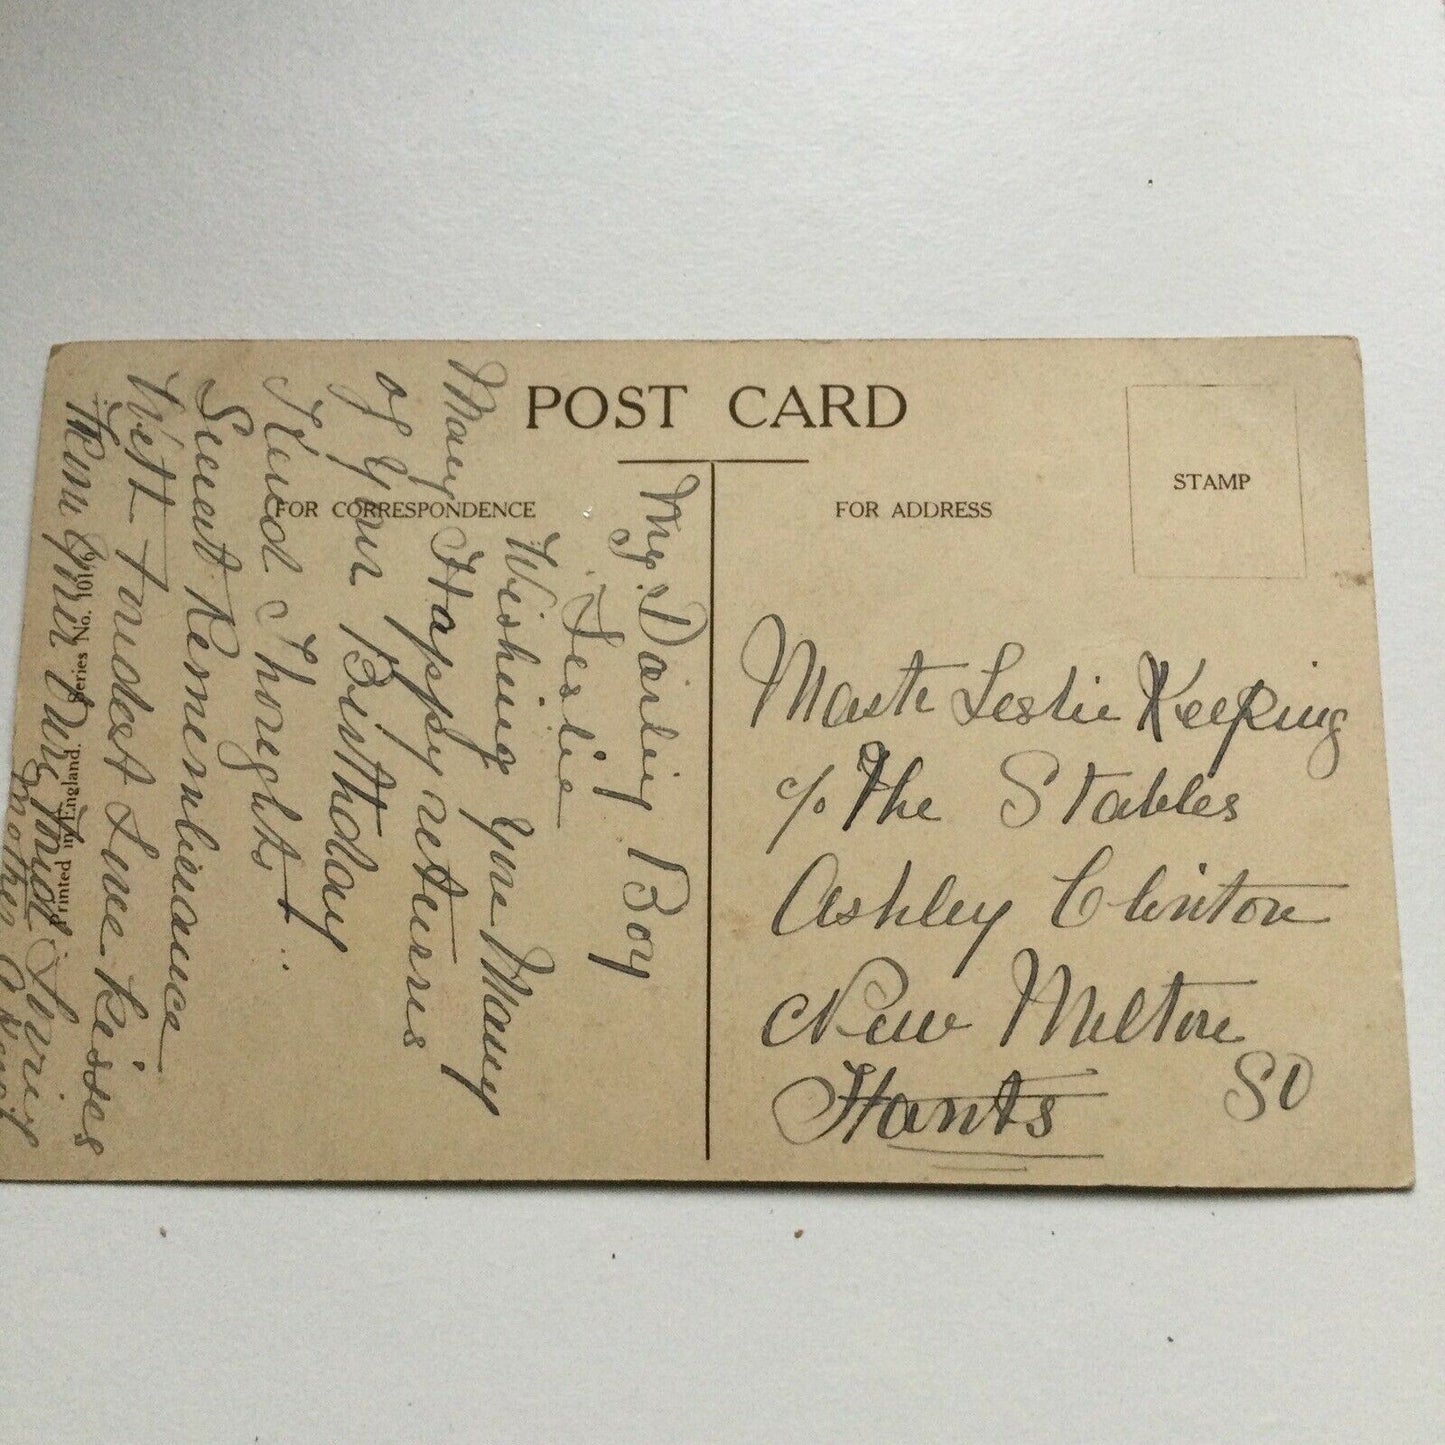 POST CARD
FOR CORRESPONDENCE
FOR ADDRESS
STAMP
My Darling Boy
Leslie
Wishing You Many
Many Happy returns
of Your Birthday
Kind Thoughts
Sweet Remembrance
With Fondest Love Kisses
From Your Own Fond Loving
Mother
Printed in England.
Series No.
Mastr Leslie Keeping
c/o The Stables
Ashley Clinton
New Milton
Hants
SO